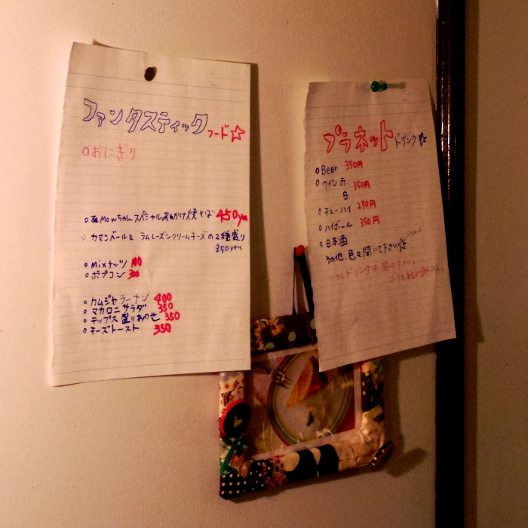 ファンタスティック
フード☆
○おにぎり
スペシャル 焼そば 450yen
○カマンベールと ラムレーズンクリームチーズの2種盛り
350yen
○Mixナッツ
○ポプコン 300
○カムジャラーナン 400
○マカロニサラダ 350
○チップス盛りあわせ 350
○チーズトースト 350
プラネット
ドリンク☆
○Beer 350円
○ワイン 赤 350円
白
○チューハイ 350円
○ハイボール 350円
○日本酒
その他、色々聞いて下さい☆
ソフトドリンクは